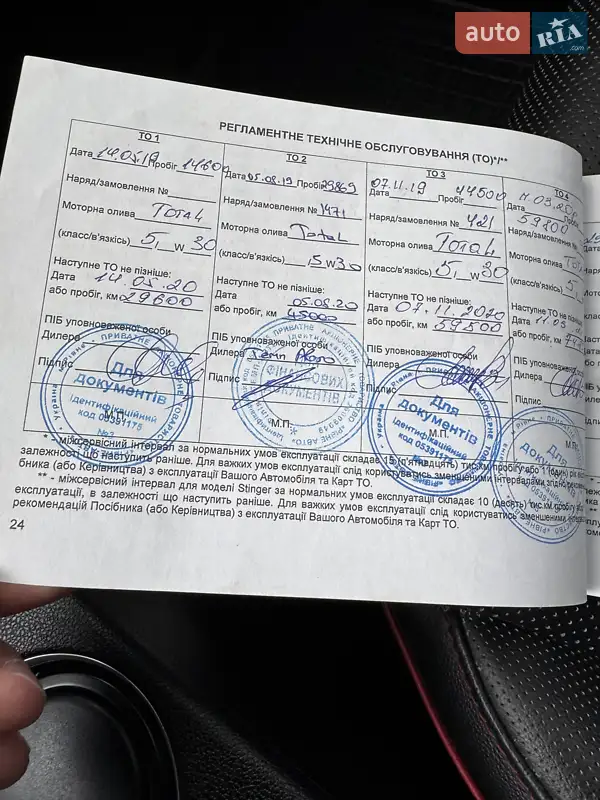 auto RIA
.com
РЕГЛАМЕНТНЕ ТЕХНІЧНЕ ОБСЛУГОВУВАННЯ (ТО)*/**
ТО 1
Дата 14.05.19 Пробіг 14600
Наряд/замовлення №
Моторна олива Total
(класс/в'язкість) 5 w 30
Наступне ТО не пізніше:
Дата 14.05.20
або пробіг, км 29600
ПІБ уповноваженої особи
Дилера
Підпис
М.П.
ТО 2
Дата 05.08.19 Пробіг 29869
Наряд/замовлення № 1471
Моторна олива Total
(класс/в'язкість) 5 w 30
Наступне ТО не пізніше:
Дата 05.08.20
або пробіг, км 45000
ПІБ уповноваженої особи
Дилера
Підпис
М.П.
ТО 3
07.11.19 Пробіг 44500
Дата
Наряд/замовлення № 421
Моторна олива Total
(класс/в'язкість) 5 w 30
Наступне ТО не пізніше:
Дата 07.11.2020
або пробіг, км 59500
ПІБ уповноваженої особи
Дилера
Підпис
М.П.
ТО 4
Дата
59800
Наряд/замовлення
Моторна олива
(класс/в'язкість) 5
Наступне ТО не
Дата
або пробіг, км
ПІБ уповноваженої
Дилера
Підпис
Для
документів
Ідентифікаційний
код 05391175
№2
Для
документів
ідентифікаційний
код 05391175
* - міжсервісний інтервал за нормальних умов експлуатації складає 15 (п'ятнадцять) тис.км пробігу або 1 (один) рік
залежності що наступить раніше. Для важких умов експлуатації слід користуватись зменшеними інтервалами згідно
бника (або Керівництва) з експлуатації Вашого Автомобіля та Карт ТО.
** - міжсервісний інтервал для моделі Stinger за нормальних умов експлуатації складає 10 (десять) тис.км пробігу
експлуатації, в залежності що наступить раніше. Для важких умов експлуатації слід користуватись зменшеними
рекомендацій Посібника (або Керівництва) з експлуатації Вашого Автомобіля та Карт ТО.
24